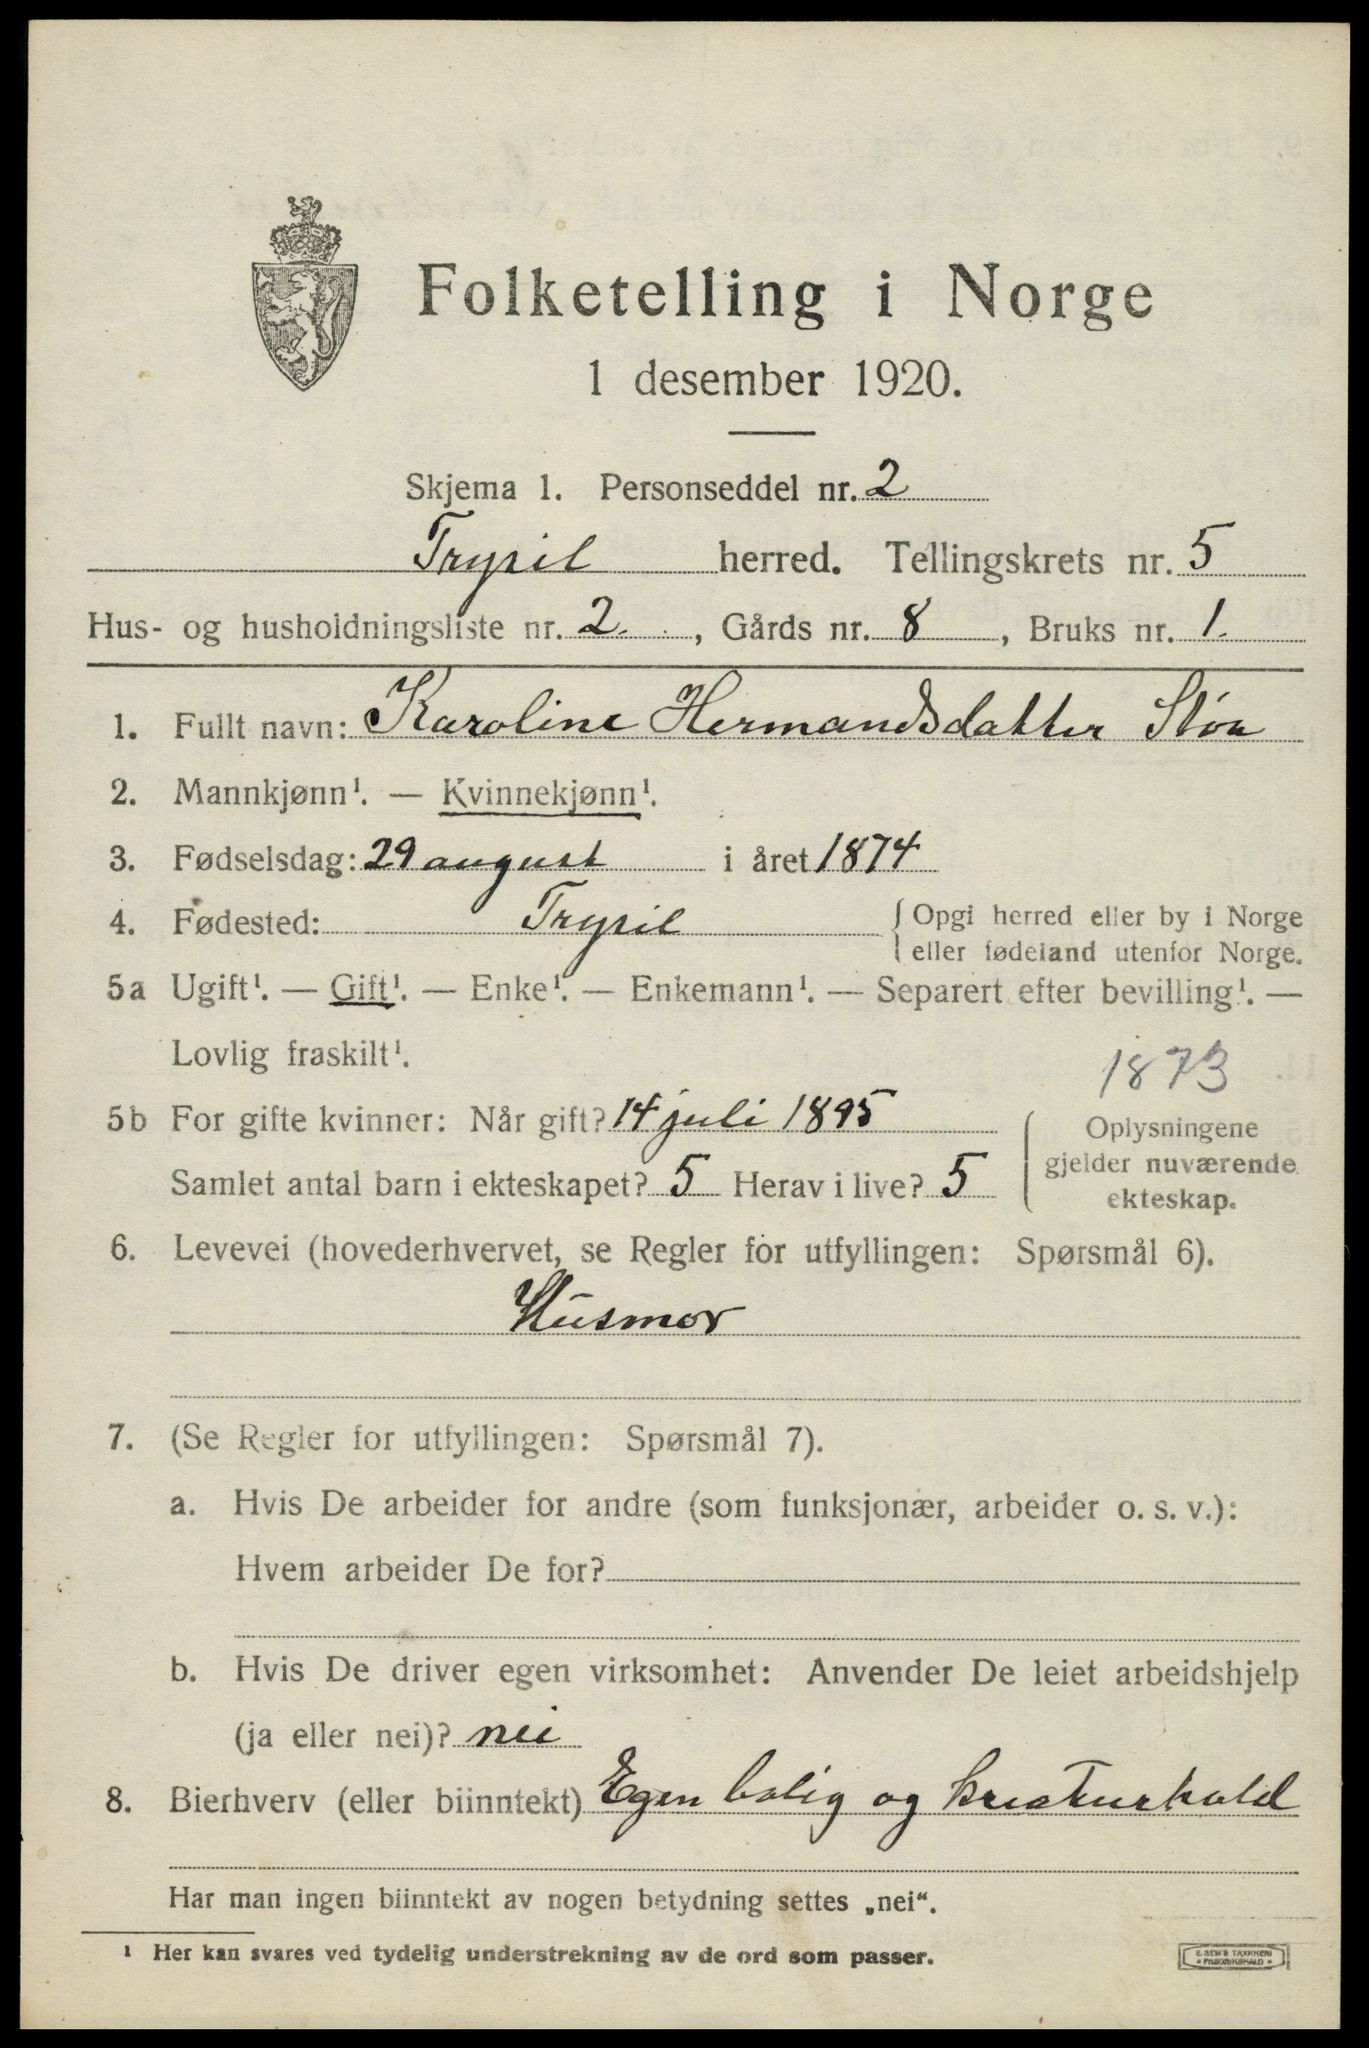 Folketelling i Norge
1 desember 1920.
Skjema 1. Personseddel nr. 2
Trysil herred. Tellingskrets nr. 5
Hus- og husholdningsliste nr. 2. , Gårds nr. 8 , Bruks nr. 1.
1. Fullt navn: Karoline Hermandsdatter Støa
2. Mannkjønn¹. — Kvinnekjønn¹.
3. Fødselsdag: 29 august i året 1874
4. Fødested: Trysil { Opgi herred eller by i Norge
eller fødeland utenfor Norge.
5a Ugift¹. — Gift¹. — Enke¹. — Enkemann¹. — Separert efter bevilling¹. —
Lovlig fraskilt¹.
1873
5b For gifte kvinner: Når gift? 14 juli 1895
Samlet antal barn i ekteskapet? 5 Herav i live? 5
Oplysningene
gjelder nuværende
ekteskap.
6. Levevei (hovederhvervet, se Regler for utfyllingen: Spørsmål 6).
Husmor
7. (Se Regler for utfyllingen: Spørsmål 7).
a. Hvis De arbeider for andre (som funksjonær, arbeider o. s. v.):
Hvem arbeider De for?
b. Hvis De driver egen virksomhet: Anvender De leiet arbeidshjelp
(ja eller nei)? nei
8. Bierhverv (eller biinntekt) Egen bolig og kreaturhold
Har man ingen biinntekt av nogen betydning settes „nei“.
¹ Her kan svares ved tydelig understrekning av de ord som passer.